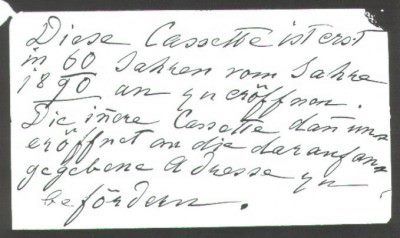 Diese Cassette ist erst
in 60 Jahren vom Jahre
1890 an zu eröffnen.
Die iñere Cassette dañ un=
eröffnet an die darauf an=
gegebene Adresse zu
befördern.